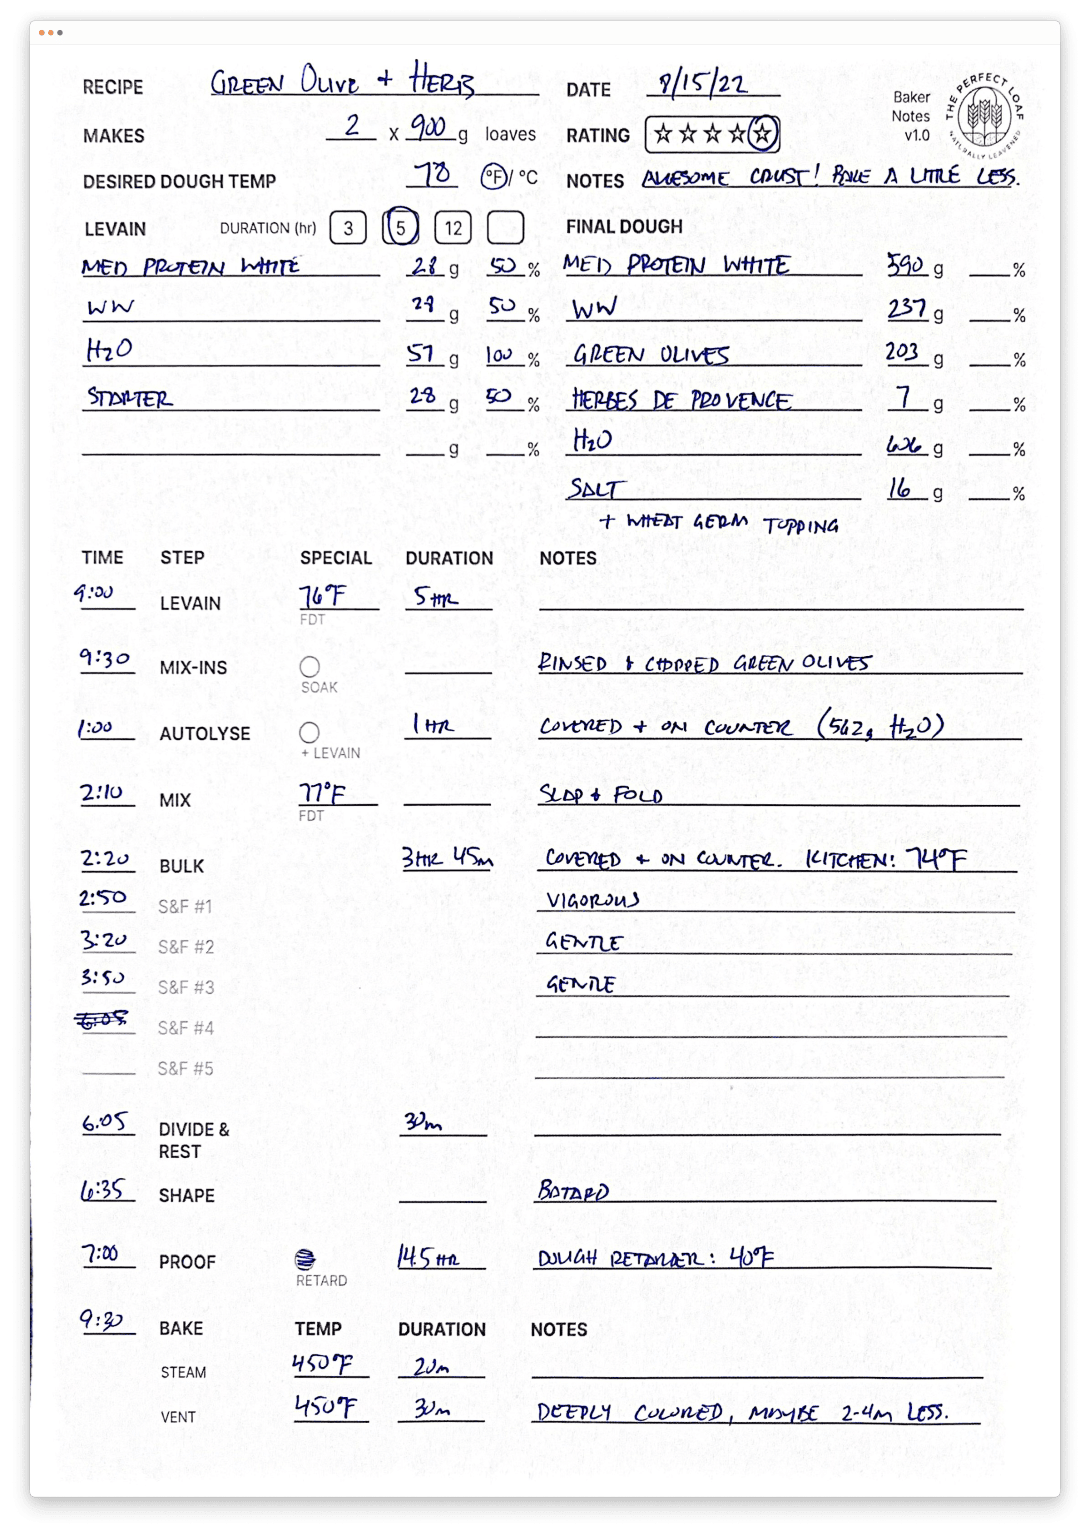 RECIPE GREEN OLIVE + HERB
DATE 8/15/22
Baker Notes v1.0
THE PERFECT LOAF
NATURALLY LEAVENED
MAKES 2 x 900 g loaves
RATING ☆☆☆☆☆
DESIRED DOUGH TEMP 78 °F/ °C
NOTES AWESOME CRUST! BAKE A LITTLE LESS.
LEVAIN DURATION (hr) 3 5 12
FINAL DOUGH
MED PROTEIN WHITE 28 g 50 %
MED PROTEIN WHITE 590 g %
WW 28 g 50 %
WW 237 g %
H2O 57 g 100 %
GREEN OLIVES 203 g %
STARTER 28 g 50 %
HERBES DE PROVENCE 7 g %
g %
H2O 606 g %
SALT 16 g %
+ WHEAT GERM TOPPING
TIME STEP SPECIAL DURATION NOTES
9:00 LEVAIN 76°F 5 HR
FDT
9:30 MIX-INS RINSED + CHOPPED GREEN OLIVES
SOAK
1:00 AUTOLYSE 1 HR COVERED + ON COUNTER (562g H2O)
+ LEVAIN
2:10 MIX 77°F SLAP + FOLD
FDT
2:20 BULK 3HR 45m COVERED + ON COUNTER. KITCHEN: 74°F
2:50 S&F #1 VIGOROUS
3:20 S&F #2 GENTLE
3:50 S&F #3 GENTLE
6:05 S&F #4
S&F #5
6:05 DIVIDE & REST 30m
6:35 SHAPE BATARD
7:00 PROOF 14.5 HR DOUGH RETARDER: 40°F
RETARD
9:30 BAKE TEMP DURATION NOTES
STEAM 450°F 20m
VENT 450°F 30m DEEPLY COLORED, MAYBE 2-4m LESS.